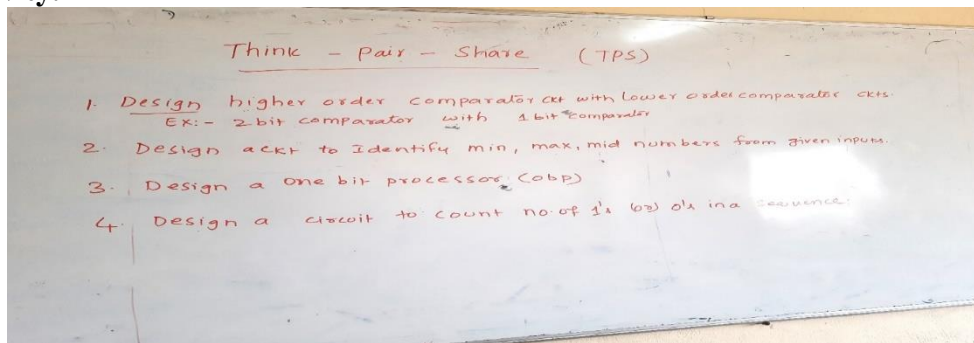 Think - Pair - Share (TPS)
1. Design higher order comparator ckt with Lower order comparator ckts.
Ex:- 2 bit comparator with 1 bit comparator
2. Design a ckt to Identify min, max, mid numbers from given inputs.
3. Design a One bit processor (obp)
4. Design a circuit to count no. of 1's (or) 0's in a sequence.